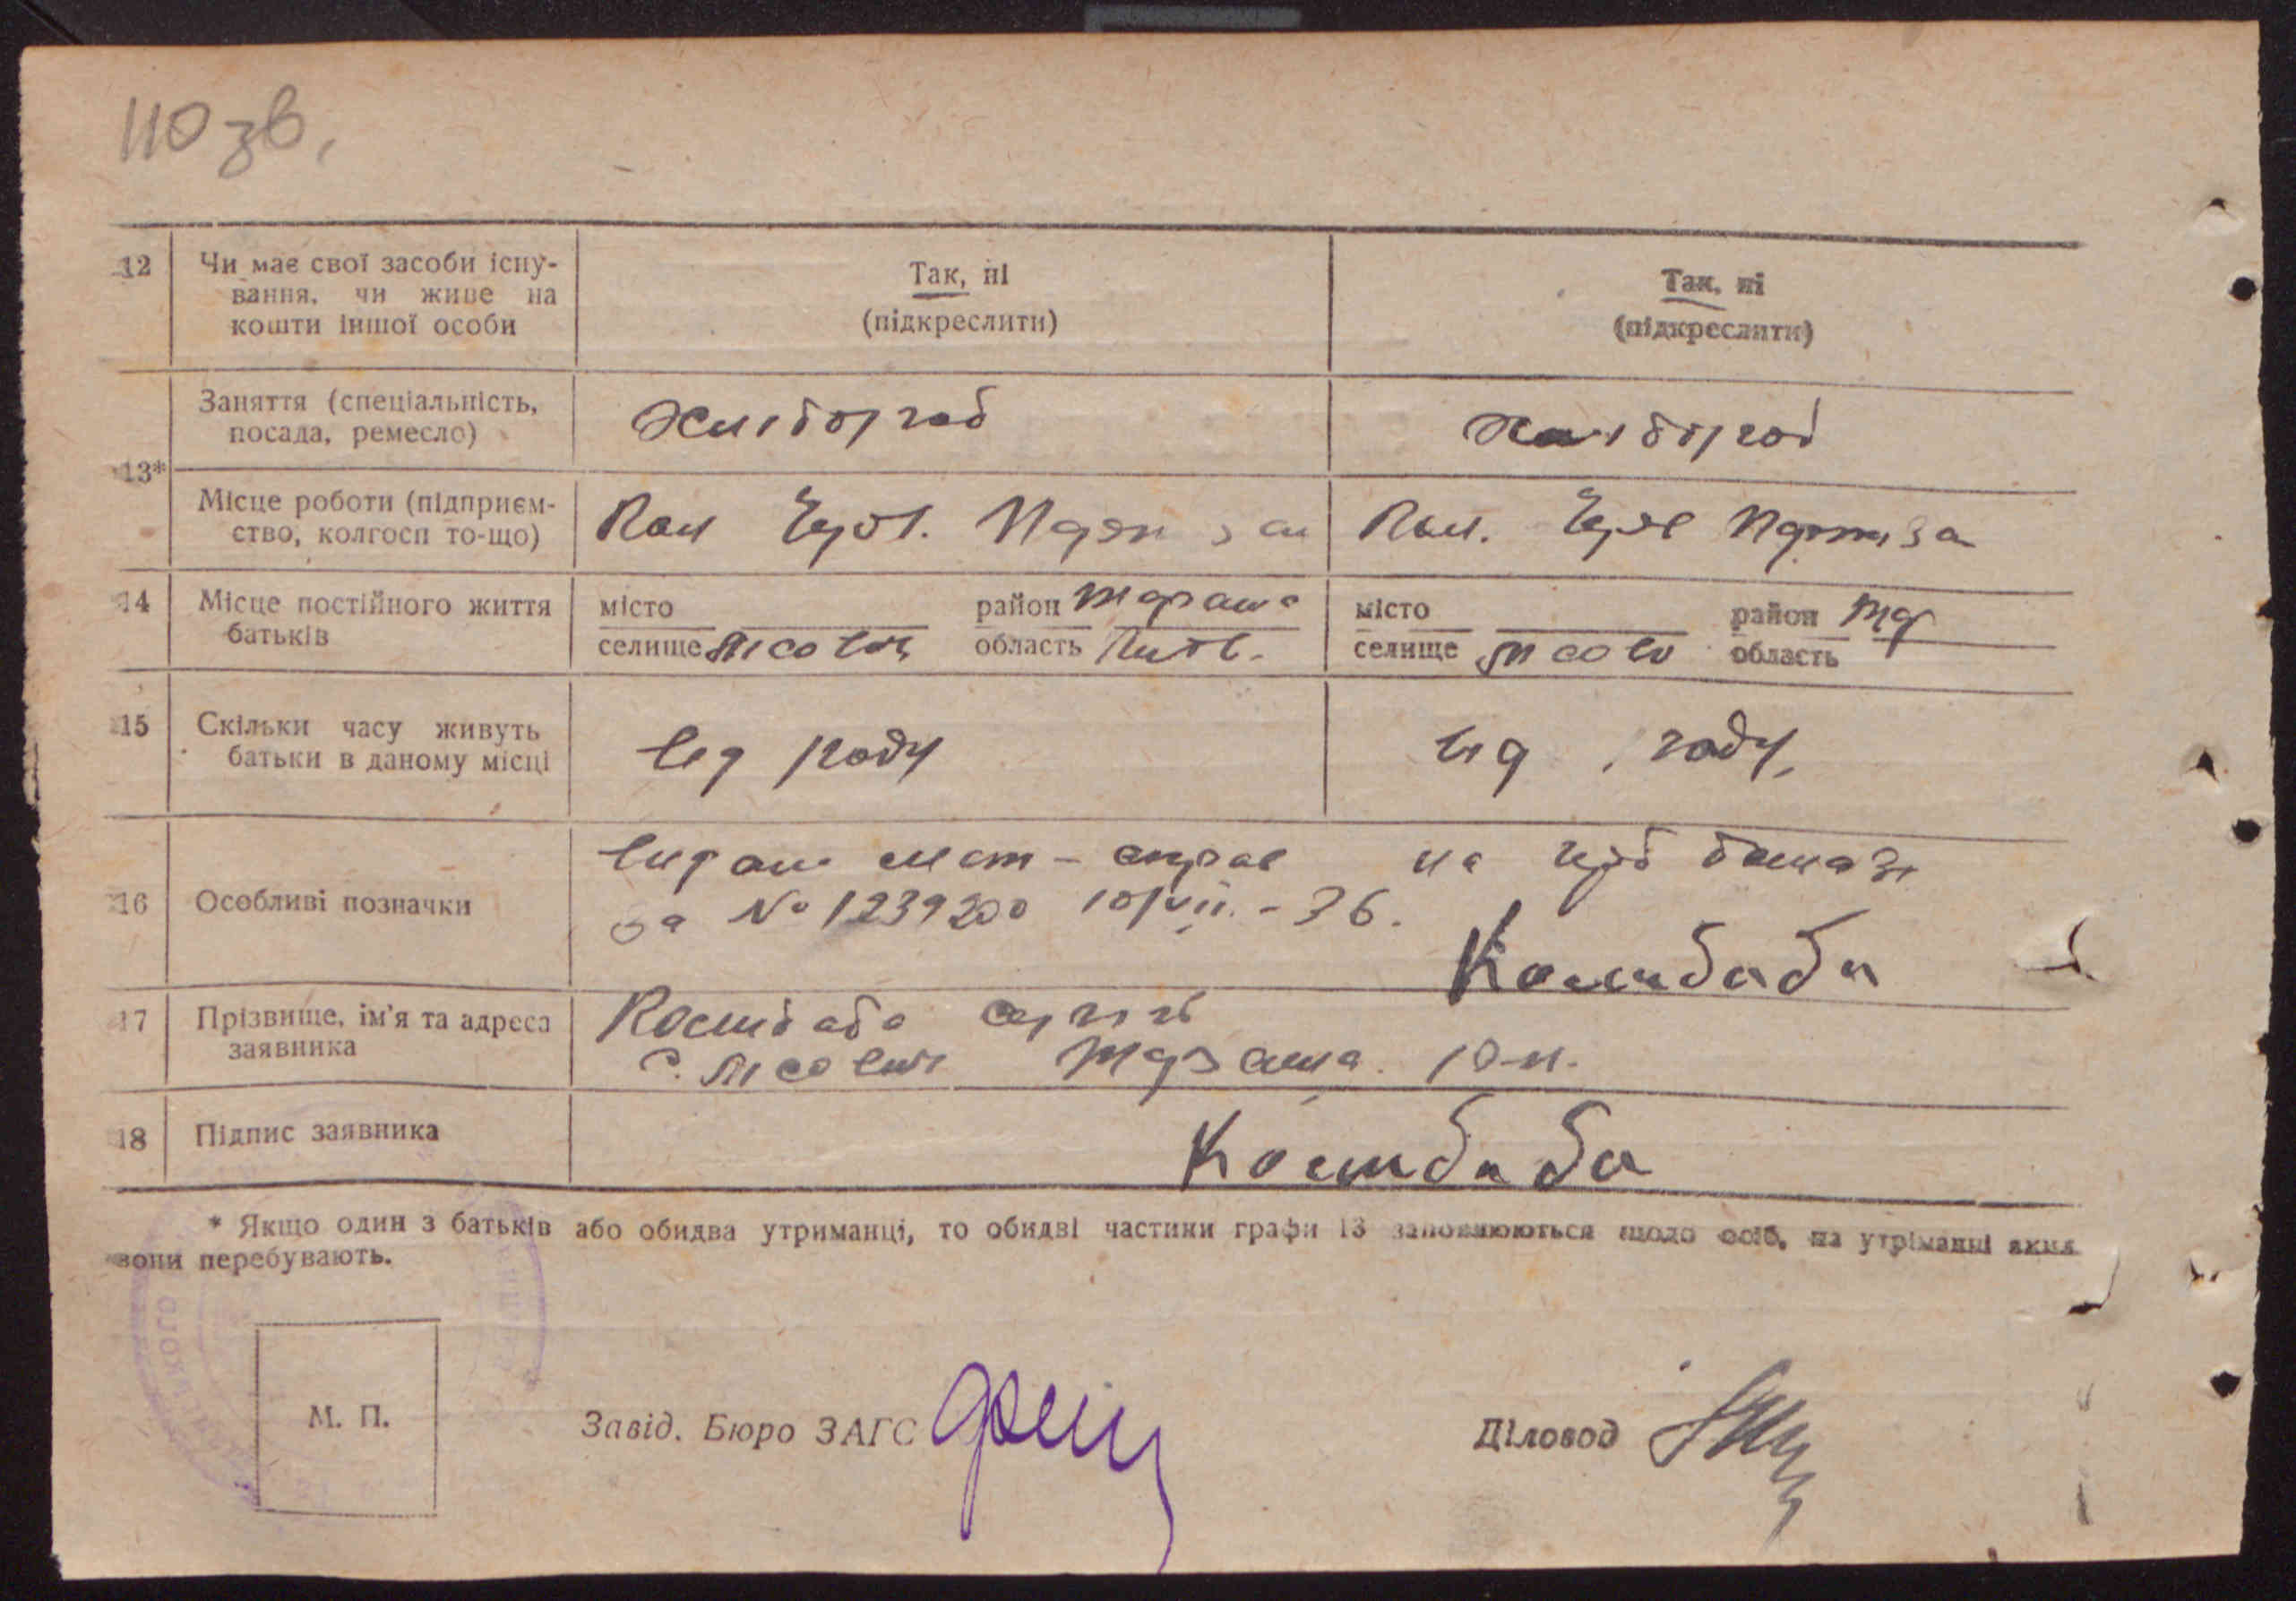 110 зв.
12 Чи має свої засоби існу-
вання, чи живе на
кошти іншої особи
Так, ні
(підкреслити)
Так, ні
(підкреслити)
13*
Заняття (спеціальність,
посада, ремесло)
Хлібороб
Хлібороб
Місце роботи (підприєм-
ство, колгосп то-що)
Кол Черв.
Кол. Черв
14 Місце постійного життя
батьків
місто
селище Лісович
район Тараща
область Київ.
місто
селище Лісов
район Тар
область
15 Скільки часу живуть
батьки в даному місці
від роду
від роду
16 Особливі позначки
на
за № 1239200 10/VII.-36.
Костбаба
17 Прізвище, ім'я та адреса
заявника
Костбаба Сергій
с. Лісович Тараща. р-н.
18 Підпис заявника
Костбаба
* Якщо один з батьків або обидва утриманці, то обидві частини графи 13 заповнюються щодо осіб, на утріманні яких
вони перебувають.
М. П.
Завід. Бюро ЗАГС
Діловод